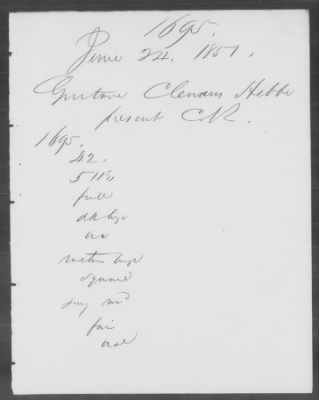 1695.
June 24. 1851.
Gustave Clemens Hebbe
present C.R.
1695.
42.
5 11¼
full
dk hze
rather large
square
fair
oval